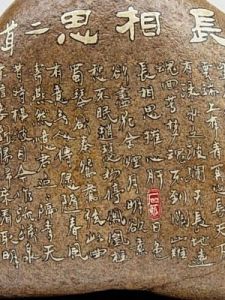 長相思二首
雲端上有青冥之長天下
有淥水之波瀾天長地遠
魂飛苦夢魂不到關山難
長相思摧心肝
日色
欲盡花含煙月明欲素
愁不眠趙瑟初停鳳凰柱
蜀琴欲奏鴛鴦絃此曲
有意無人傳願隨春風
寄燕然憶君迢迢隔青天
昔時橫波目今作流淚泉
歸來看取明